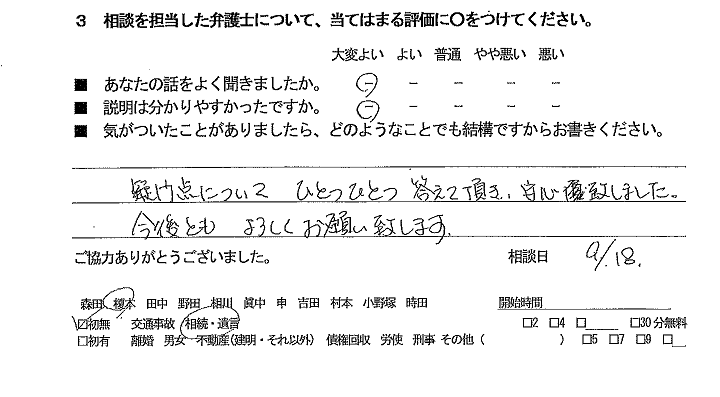 3 相談を担当した弁護士について、当てはまる評価に〇をつけてください。
大変よい よい 普通 やや悪い 悪い
■ あなたの話をよく聞きましたか。 − − − − −
■ 説明は分かりやすかったですか。 − − − − −
■ 気がついたことがありましたら、どのようなことでも結構ですからお書きください。
疑問点について ひとつひとつ 答えて頂き、安心 致しました。
今後とも よろしくお願い致します。
ご協力ありがとうございました。 相談日 9/18.
森田 榎本 田中 野田 相川 眞中 申 吉田 村本 小野塚 時田 開始時間
☑初無 交通事故 相続・遺言 □2 □4 □ □30分無料
□初有 離婚 男女 不動産(建明・それ以外) 債権回収 労使 刑事 その他 ( ) □5 □7 □9 □